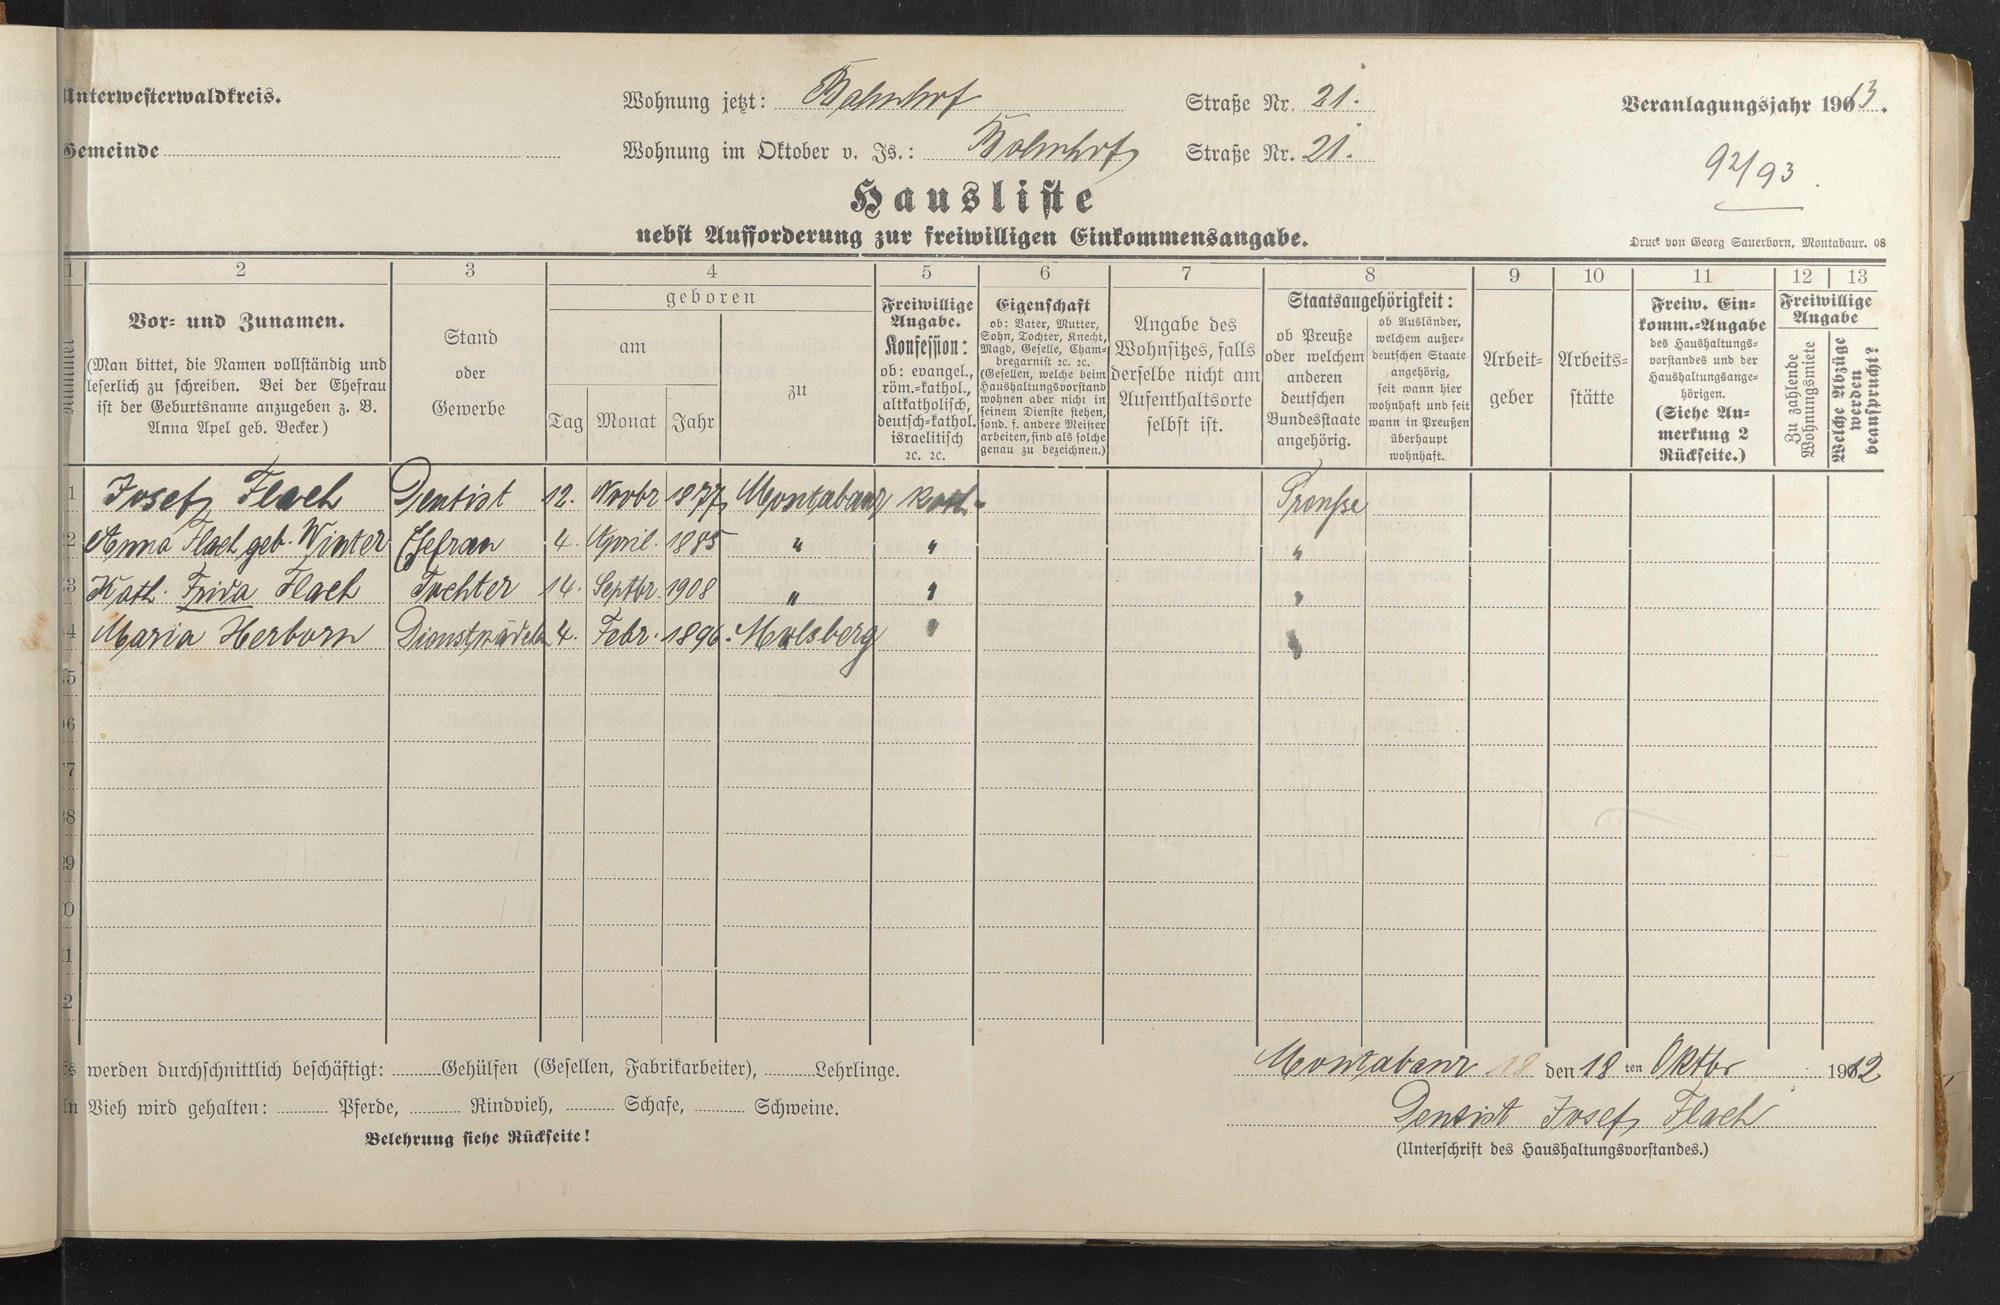 Unterwesterwaldkreis.
Wohnung jetzt: Bahnhof Straße Nr. 21.
Veranlagungsjahr 1913.
Gemeinde
Wohnung im Oktober v. Js.: Bahnhof Straße Nr. 21.
92/93
Hausliste
nebst Aufforderung zur freiwilligen Einkommensangabe.
Druck von Georg Sauerborn, Montabaur. 08
1 2 3 4 5 6 7 8 9 10 11 12 13
Nummer
Vor- und Zunamen.
(Man bittet, die Namen vollständig und
leserlich zu schreiben. Bei der Ehefrau
ist der Geburtsname anzugeben z. B.
Anna Apel geb. Becker.)
Stand
oder
Gewerbe
geboren
am
Tag Monat Jahr
zu
Freiwillige
Angabe.
Konfession:
ob: evangel.,
röm.-kathol.,
altkatholisch,
deutsch-kathol.
israelitisch
2c. 2c.
Eigenschaft
ob: Vater, Mutter,
Sohn, Tochter, Knecht,
Magd, Geselle, Cham-
bregarnist 2c. 2c.
(Gesellen, welche beim
Haushaltungsvorstand
wohnen aber nicht in
seinem Dienste stehen,
sond. f. andere Meister
arbeiten, sind als solche
genau zu bezeichnen.)
Angabe des
Wohnsitzes, falls
derselbe nicht am
Aufenthaltsorte
selbst ist.
Staatsangehörigkeit:
ob Preuße
oder welchem
anderen
deutschen
Bundesstaate
angehörig.
ob Ausländer,
welchem außer-
deutschen Staate
angehörig,
seit wann hier
wohnhaft und seit
wann in Preußen
überhaupt
wohnhaft.
Arbeit-
geber
Arbeits-
stätte
Freiw. Ein-
komm.-Angabe
des Haushaltungs-
vorstandes und der
Haushaltungsange-
hörigen.
(Siehe An-
merkung 2
Rückseite.)
Freiwillige
Angabe
Zu zahlende
Wohnungsmiete
Welche Abzüge
werden
beansprucht?
1 Josef Flach Dentist 12. Novbr 1877 Montabaur kath. Preuße
2 Anna Flach geb. Winter Ehefrau 4. April. 1885 " " "
3 Kath. Frida Flach Tochter 14. Septbr. 1908 " " "
4 Maria Herborn Dienstmädch 4. Febr. 1896. Molsberg " "
5
6
7
8
9
0
1
2
werden durchschnittlich beschäftigt: Gehülfen (Gesellen, Fabrikarbeiter), Lehrlinge.
Montabaur 18 den 18 ten Oktbr 1912
An Vieh wird gehalten: Pferde, Rindvieh, Schafe, Schweine.
Dentist Josef Flach
Belehrung siehe Rückseite!
(Unterschrift des Haushaltungsvorstandes.)